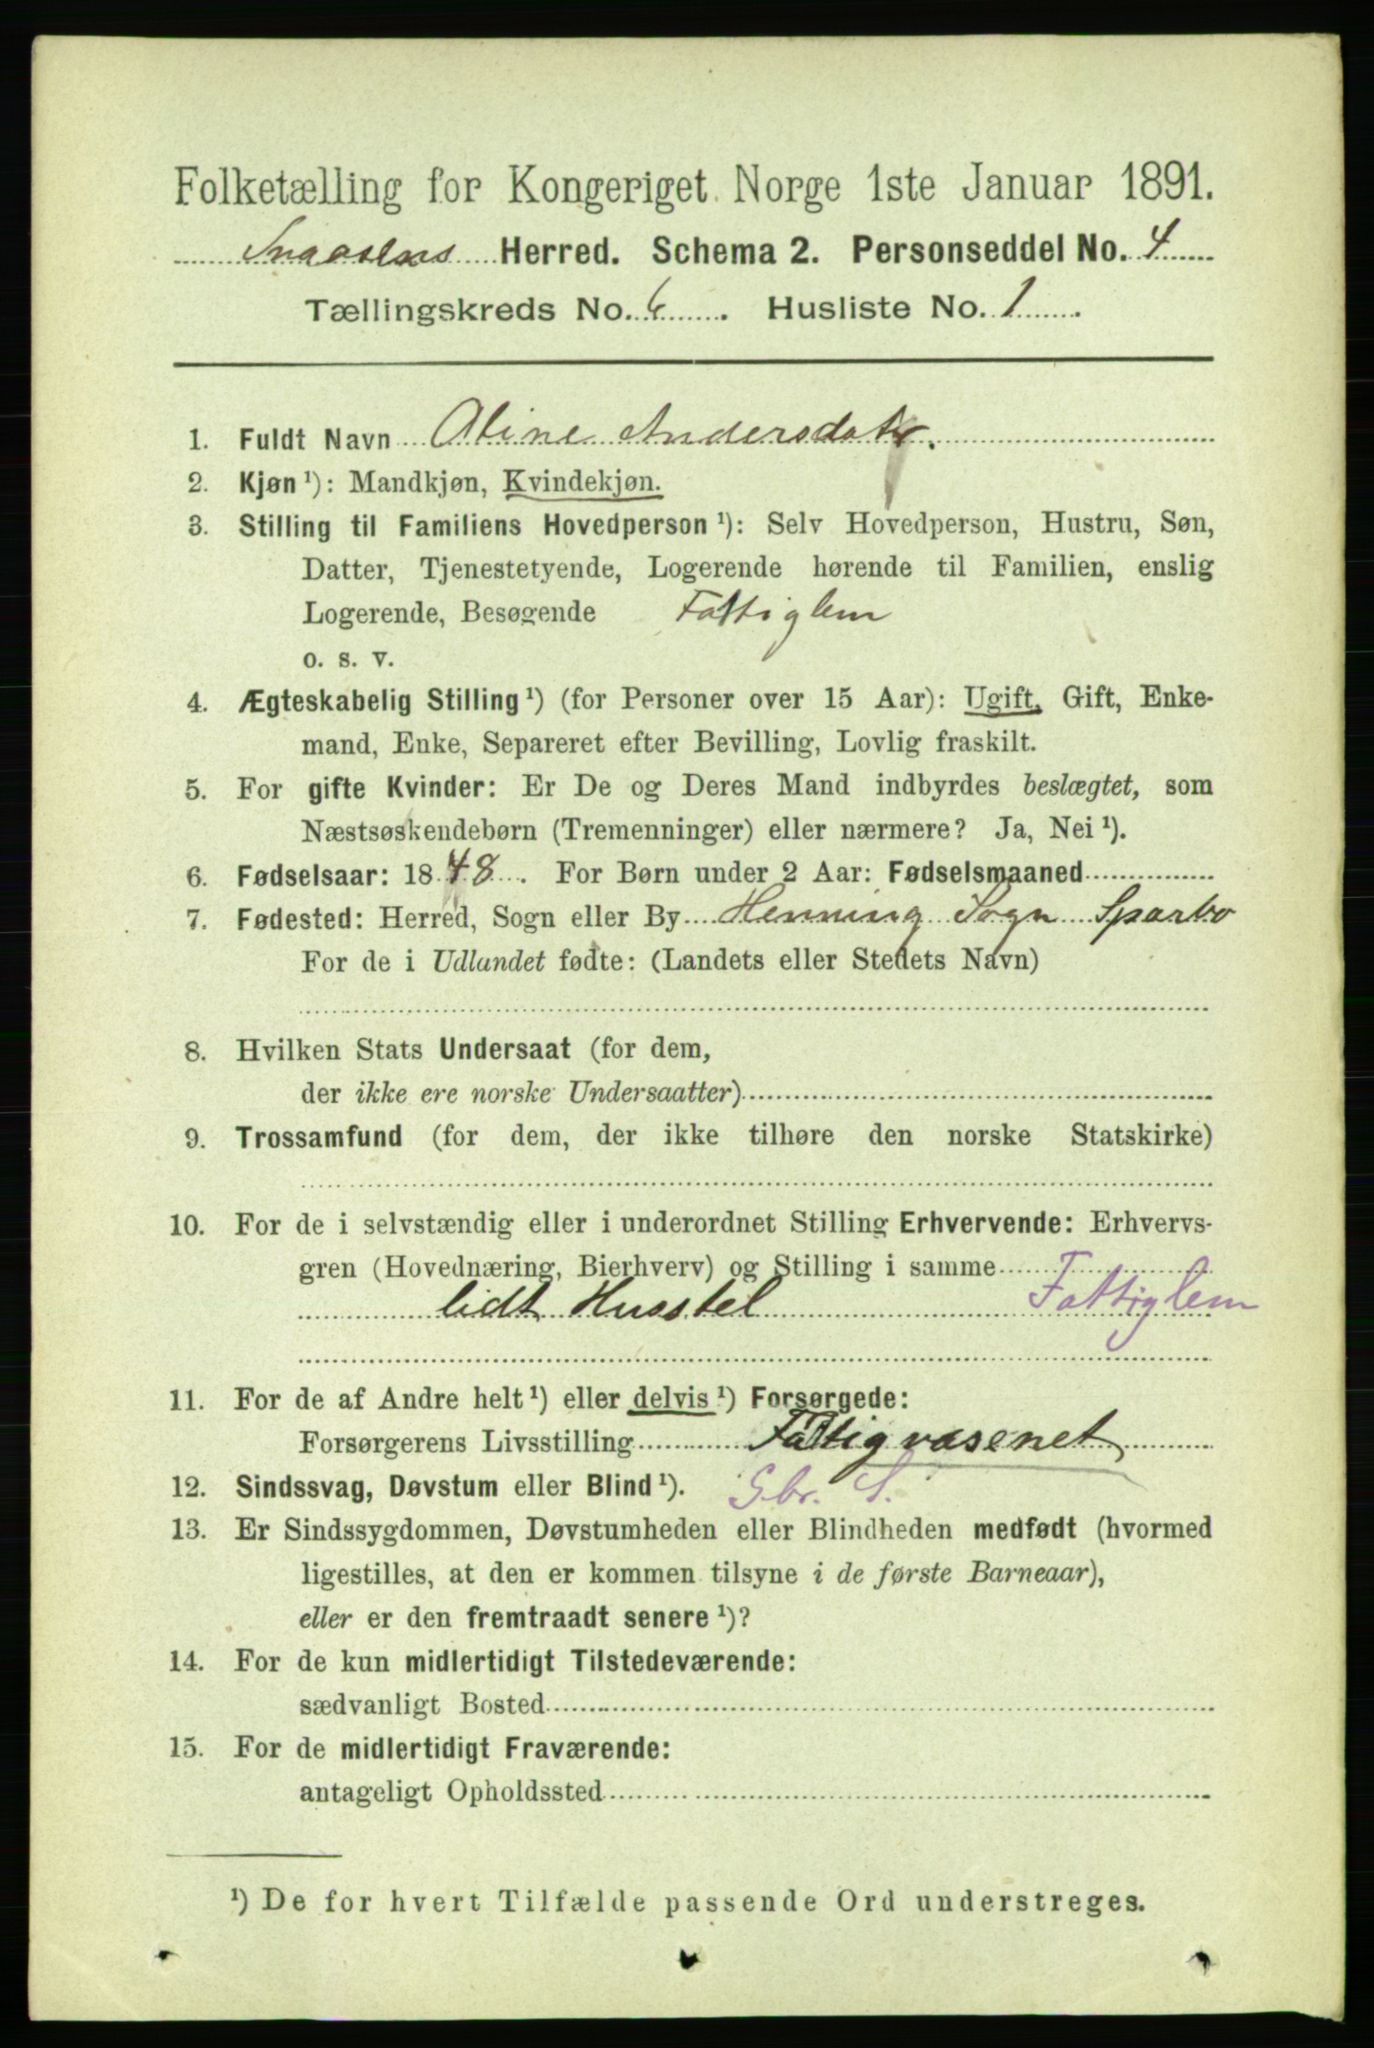 Folketælling for Kongeriget Norge 1ste Januar 1891.
Snaasens Herred. Schema 2. Personseddel No. 4
Tællingskreds No. 6. Husliste No. 1.
1. Fuldt Navn Oline Andersdatr.
2. Kjøn ¹): Mandkjøn, Kvindekjøn.
3. Stilling til Familiens Hovedperson ¹): Selv Hovedperson, Hustru, Søn,
Datter, Tjenestetyende, Logerende hørende til Familien, enslig
Logerende, Besøgende Fattiglem
o. s. v.
4. Ægteskabelig Stilling ¹) (for Personer over 15 Aar): Ugift, Gift, Enke-
mand, Enke, Separeret efter Bevilling, Lovlig fraskilt.
5. For gifte Kvinder: Er De og Deres Mand indbyrdes beslægtet, som
Næstsøskendebørn (Tremenninger) eller nærmere? Ja, Nei ¹).
6. Fødselsaar: 1848. For Børn under 2 Aar: Fødselsmaaned
7. Fødested: Herred, Sogn eller By Henning Sogn Sparbo
For de i Udlandet fødte: (Landets eller Stedets Navn)
8. Hvilken Stats Undersaat (for dem,
der ikke ere norske Undersaatter)
9. Trossamfund (for dem, der ikke tilhøre den norske Statskirke)
10. For de i selvstændig eller i underordnet Stilling Erhvervende: Erhvervs-
gren (Hovednæring, Bierhverv) og Stilling i samme
lidt Husstel Fattiglem
11. For de af Andre helt ¹) eller delvis ¹) Forsørgede:
Forsørgerens Livsstilling Fattigvæsenet
12. Sindssvag, Døvstum eller Blind ¹). Gbr. S.
13. Er Sindssygdommen, Døvstumheden eller Blindheden medfødt (hvormed
ligestilles, at den er kommen tilsyne i de første Barneaar),
eller er den fremtraadt senere ¹)?
14. For de kun midlertidigt Tilstedeværende:
sædvanligt Bosted
15. For de midlertidigt Fraværende:
antageligt Opholdssted
¹) De for hvert Tilfælde passende Ord understreges.